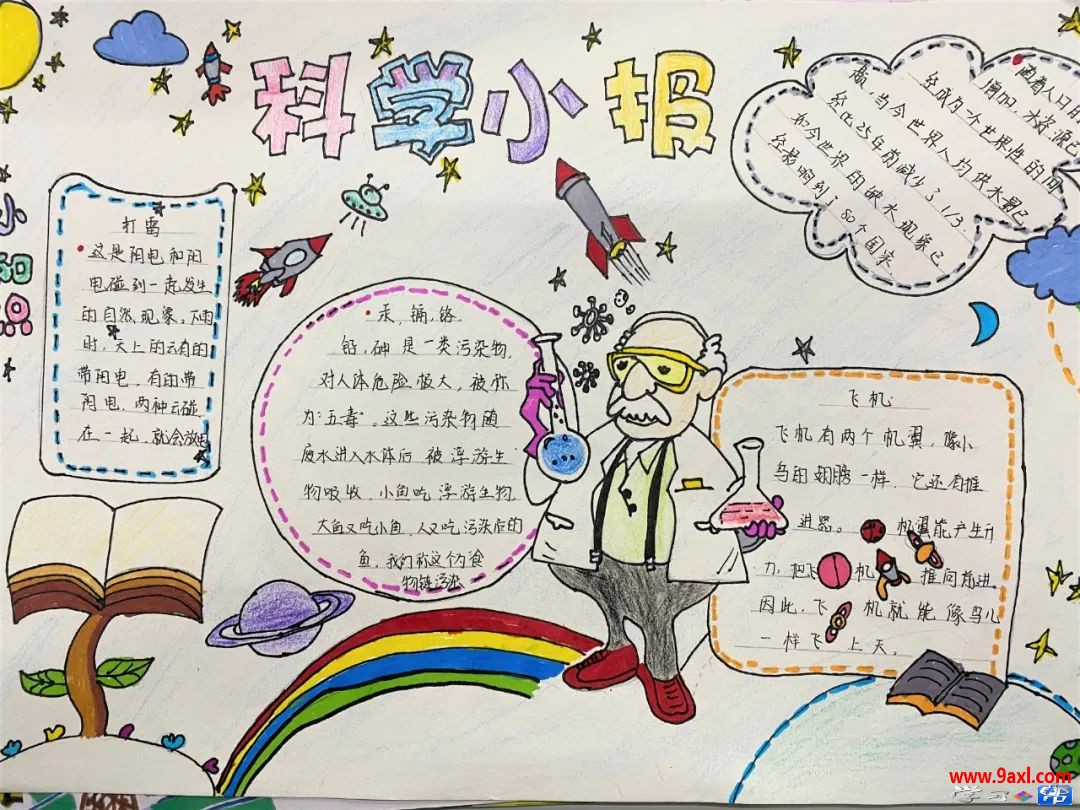 科学小报
小
知
识
打雷
这是阳电和阴
电碰到一起发生
的自然现象。下雨
时,天上的云有的
带阳电,有的带
阴电,两种云碰
在一起,就会放电
汞,镉,铬,
铅,砷是一类污染物,
对人体危险极大,被称
为“五毒”。这些污染物随
废水进入水体后 被浮游生
物吸收,小鱼吃浮游生物,
大鱼又吃小鱼,人又吃污染的
鱼,我们称这个为食
物链污染
随着人口
增加,水资源已
经成为一个世界性的问
题,当今世界人均供水量已
经比25年前减少了1/3.
如今世界的缺水现象已
经影响到了80个国家
飞机
飞机有两个机翼,像小
鸟的翅膀一样,它还有推
进器。机翼能产生升
力,把飞机推向前进。
因此,飞机就能像鸟儿
一样飞上天。
www.9axl.com